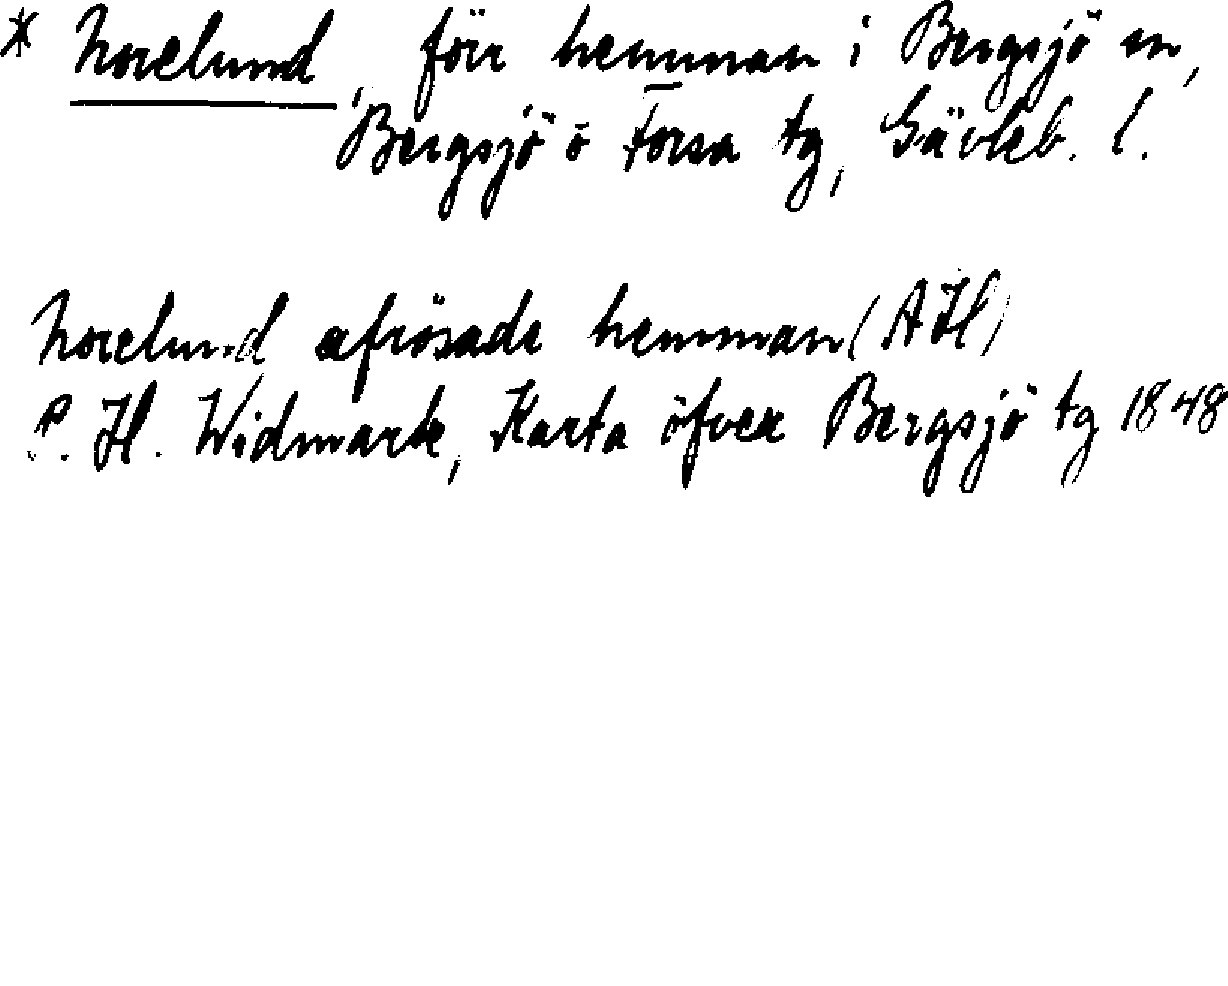 * Norelund, förr hemman i Bergsjö sn,
Bergsjö o Forsa tg, Gävleb. l.
Norelund afrösade hemman (AH)
P. H. Widmark, Karta öfver Bergsjö tg 1848